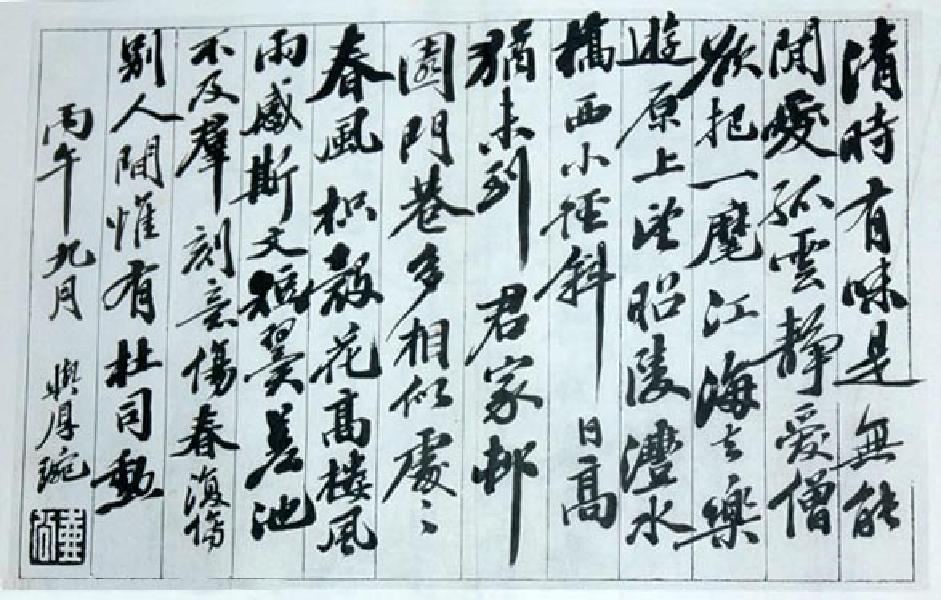 清時有味是無能
閒愛孤雲靜愛僧
欲把一麾江海去樂
遊原上望昭陵灃水
橋西小徑斜 日高
猶未到 君家邨
園門巷多相似處〻
春風枳殼花高樓風
雨感斯文短翼差池
不及羣刻意傷春復傷
別人間惟有杜司勳
丙午九月 厚琬